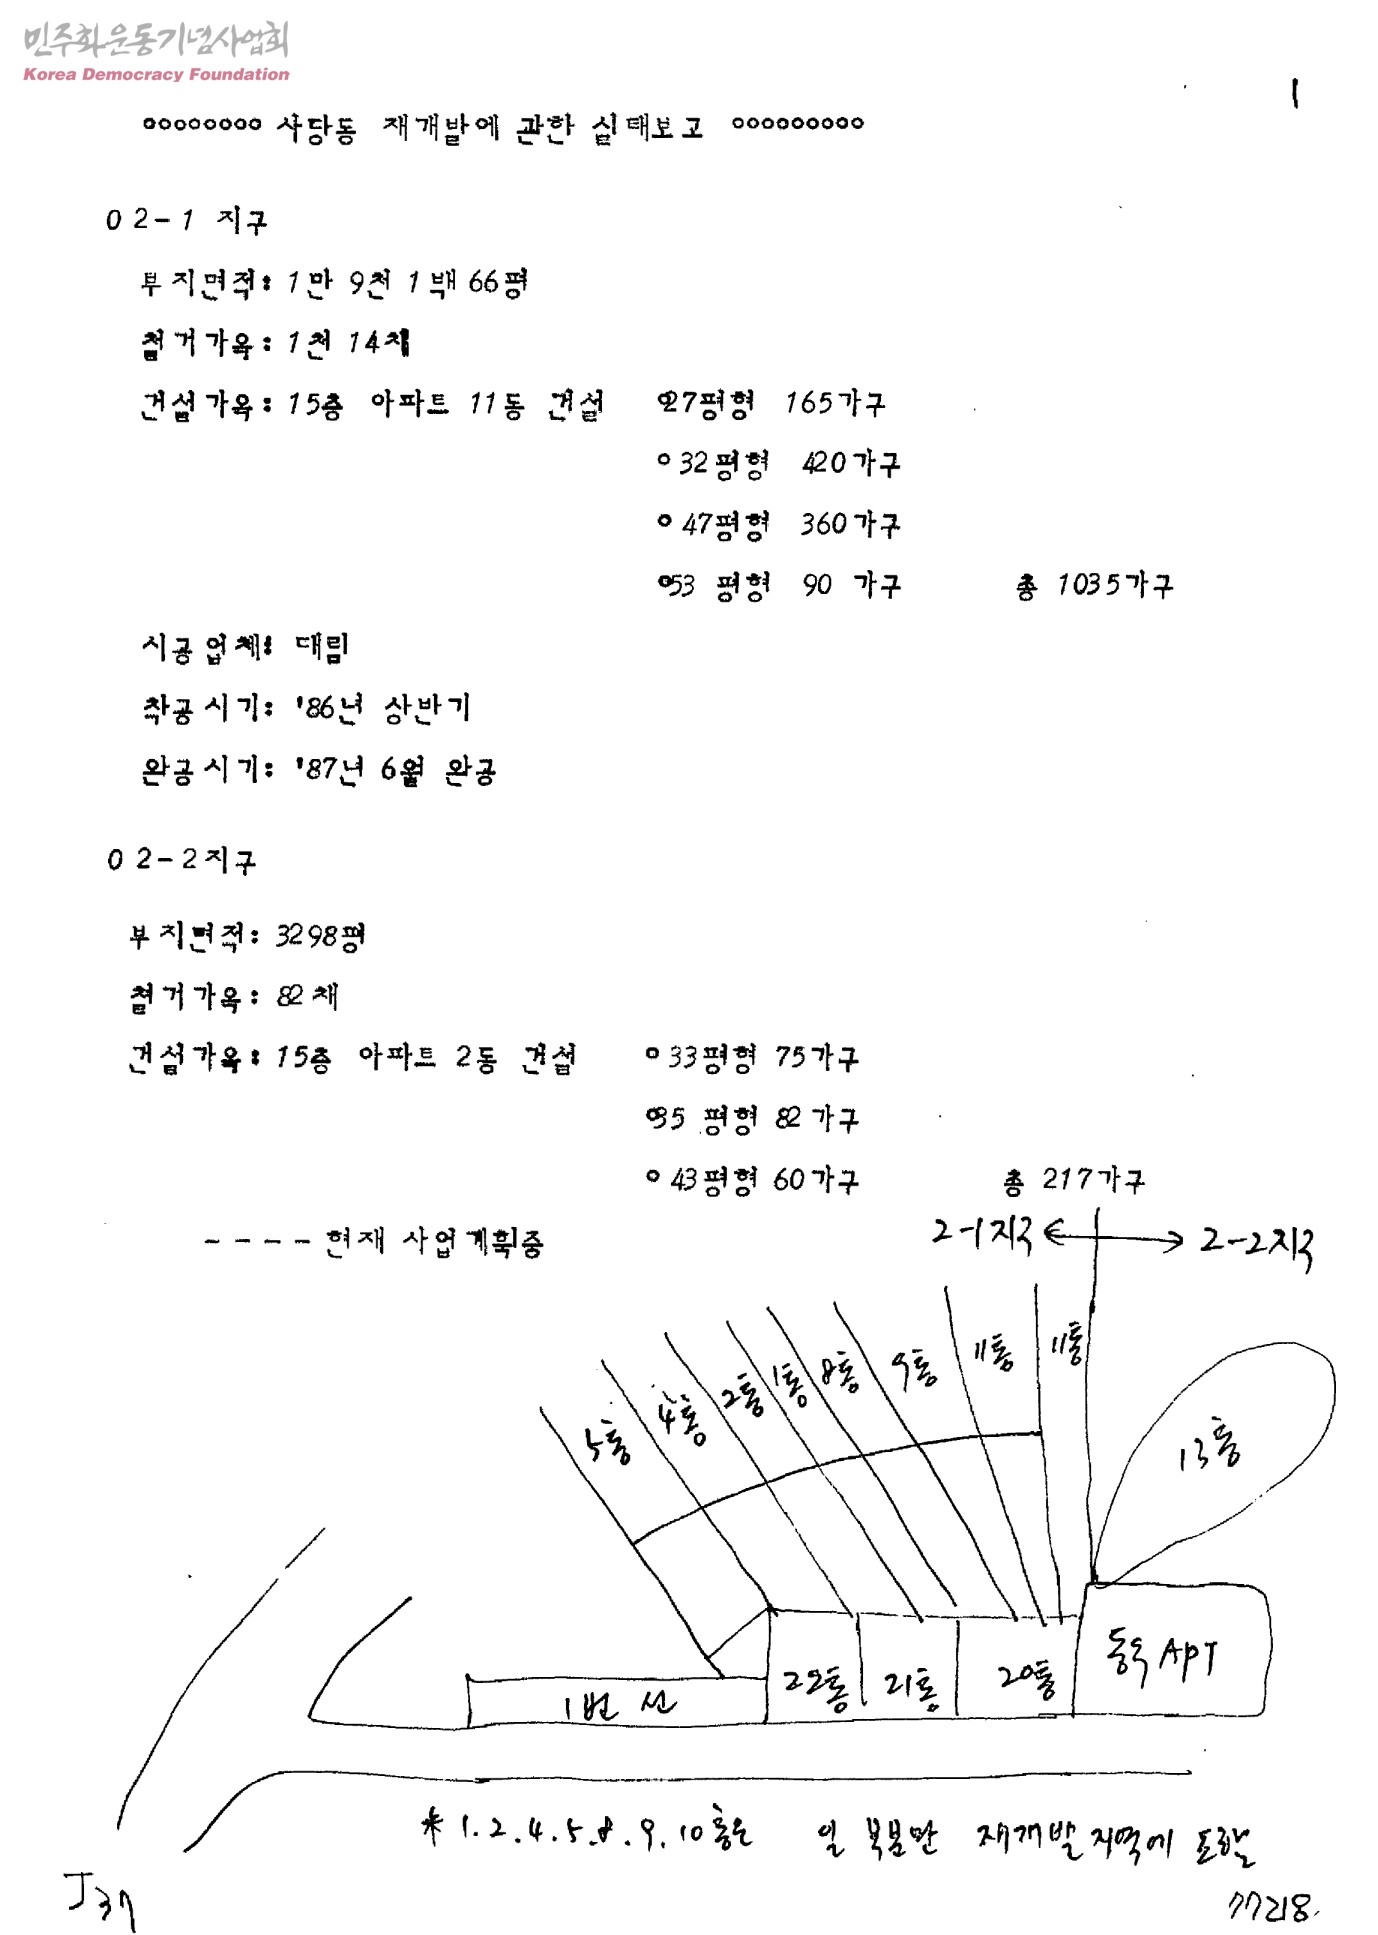 민주화운동기념사업회
Korea Democracy Foundation
1
사당동 재개발에 관한 실태보고
O 2-1 지구
부지면적: 1만 9천 1백 66평
철거가옥: 1천 14채
건설가옥: 15층 아파트 11동 건설 o27평형 165가구
o 32평형 420가구
o 47평형 360가구
o53 평형 90 가구 총 1035가구
시공업체: 대림
착공시기: '86년 상반기
완공시기: '87년 6월 완공
O 2-2지구
부지면적: 3298평
철거가옥: 82채
건설가옥: 15층 아파트 2동 건설 o 33평형 75가구
o35 평형 82가구
o 43평형 60가구 총 217가구
---- 현재 사업계획중
2-1지구 2-2지구
5통 4통 2통 1통 8통 9통 11통 11통
13통
22통 21통 20통 APT
1번 선
* 1.2.4.5.8.9.10통은 일부분만 재개발지역에 포함
J37
77218